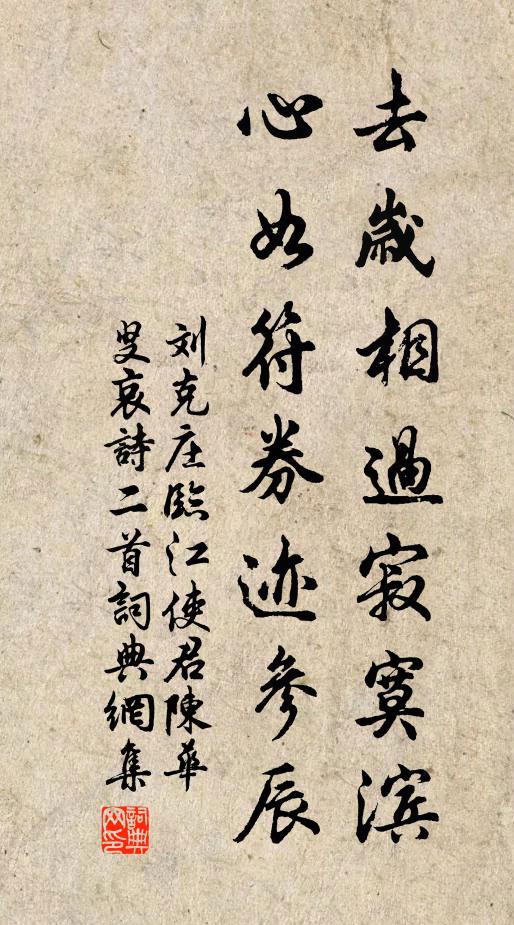 去歲相過寂寞滨
心如符券迹參辰
刘克庄臨江使君陳華
叟哀詩二首詞典網集
詞典
网印